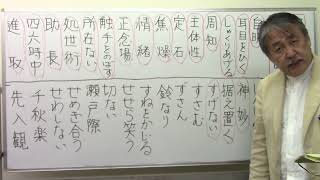 耳目をひく
しゃくりあげる
周知
主体性
定石
焦燥
情緒
正念場
触手をのばす
所在ない
処世術
助長
四六時中
進取
神妙
据え置く
すげない
すさむ
ずさん
鈴なり
すねをかじる
せせら笑う
切ない
瀬戸際
せめぎ合う
せわしない
千秋楽
先入観